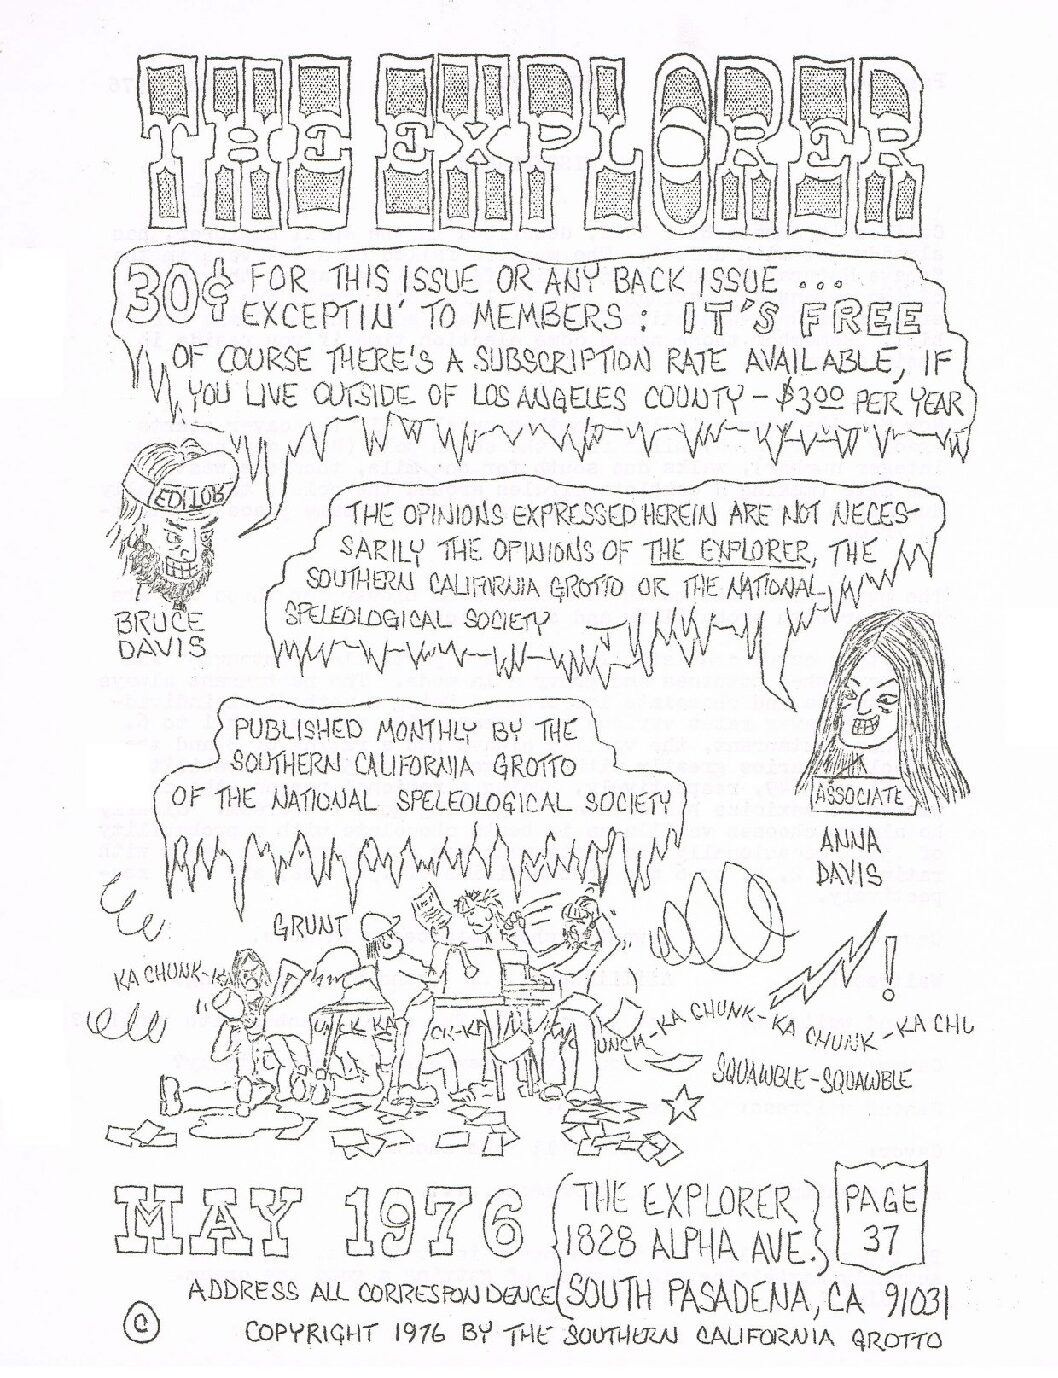 THE EXPLORER
30¢ FOR THIS ISSUE OR ANY BACK ISSUE ...
EXCEPTIN' TO MEMBERS: IT'S FREE
OF COURSE THERE'S A SUBSCRIPTION RATE AVAILABLE, IF
YOU LIVE OUTSIDE OF LOS ANGELES COUNTY - $3.00 PER YEAR
EDITOR
BRUCE
DAVIS
THE OPINIONS EXPRESSED HEREIN ARE NOT NECES-
SARILY THE OPINIONS OF THE EXPLORER, THE
SOUTHERN CALIFORNIA GROTTO OR THE NATIONAL
SPELEOLOGICAL SOCIETY
ASSOCIATE
ANNA
DAVIS
PUBLISHED MONTHLY BY THE
SOUTHERN CALIFORNIA GROTTO
OF THE NATIONAL SPELEOLOGICAL SOCIETY
GRUNT
KA CHUNK-K
UNCK KA CK-KA UNCH-KA CHUNK-KA CHUNK-KA CHU
!
SQUAWBLE-SQUAWBLE
MAY 1976
THE EXPLORER
1828 ALPHA AVE.
SOUTH PASADENA, CA 91031
PAGE
37
ADDRESS ALL CORRESPONDENCE
© COPYRIGHT 1976 BY THE SOUTHERN CALIFORNIA GROTTO